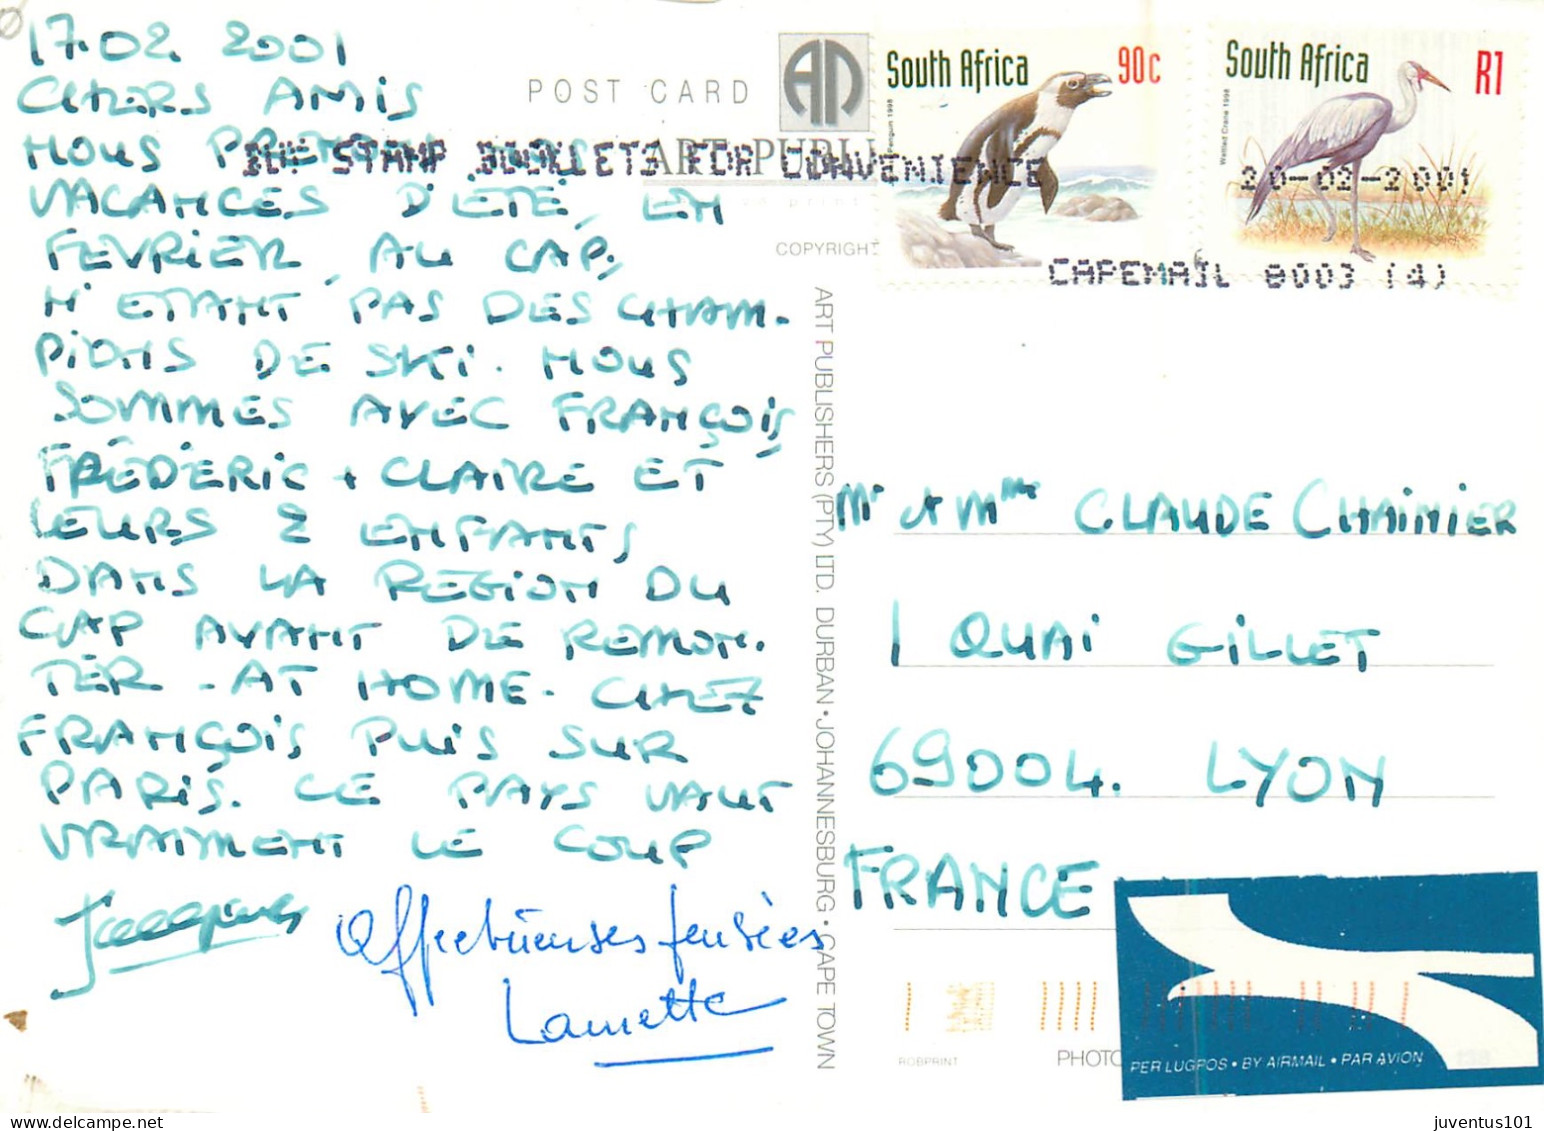 17.02 2001
CHERS AMIS
NOUS PRENONS NOS
VACANCES D'ÉTÉ, EN
FEVRIER, AU CAP,
N'ETANT PAS DES CHAM-
PIONS DE SKI. NOUS
SOMMES AVEC FRANÇOIS,
FRÉDÉRIC + CLAIRE ET
LEURS 2 ENFANTS,
DANS LA REGION DU
CAP AVANT DE REMON-
TER - AT HOME - CHEZ
FRANÇOIS PUIS SUR
PARIS. LE PAYS VAUT
VRAIMENT LE COUP
Jacques
Affectueuses pensées
POST CARD
ART PUBLI
COPYRIGHT
BUY STAMP BOOKLETS FOR CONVENIENCE
South Africa 90c
Penguin 1998
South Africa R1
Wattled Crane 1998
20-02-2001
CAPEMAIL 8003 (4)
ART PUBLISHERS (PTY) LTD. DURBAN • JOHANNESBURG • CAPE TOWN
Mr et Mme CLAUDE CHAINIER
1 QUAI GILLET
69004. LYON
FRANCE
ROBPRINT
PHOTO
PER LUGPOS • BY AIRMAIL • PAR AVION
juventus101